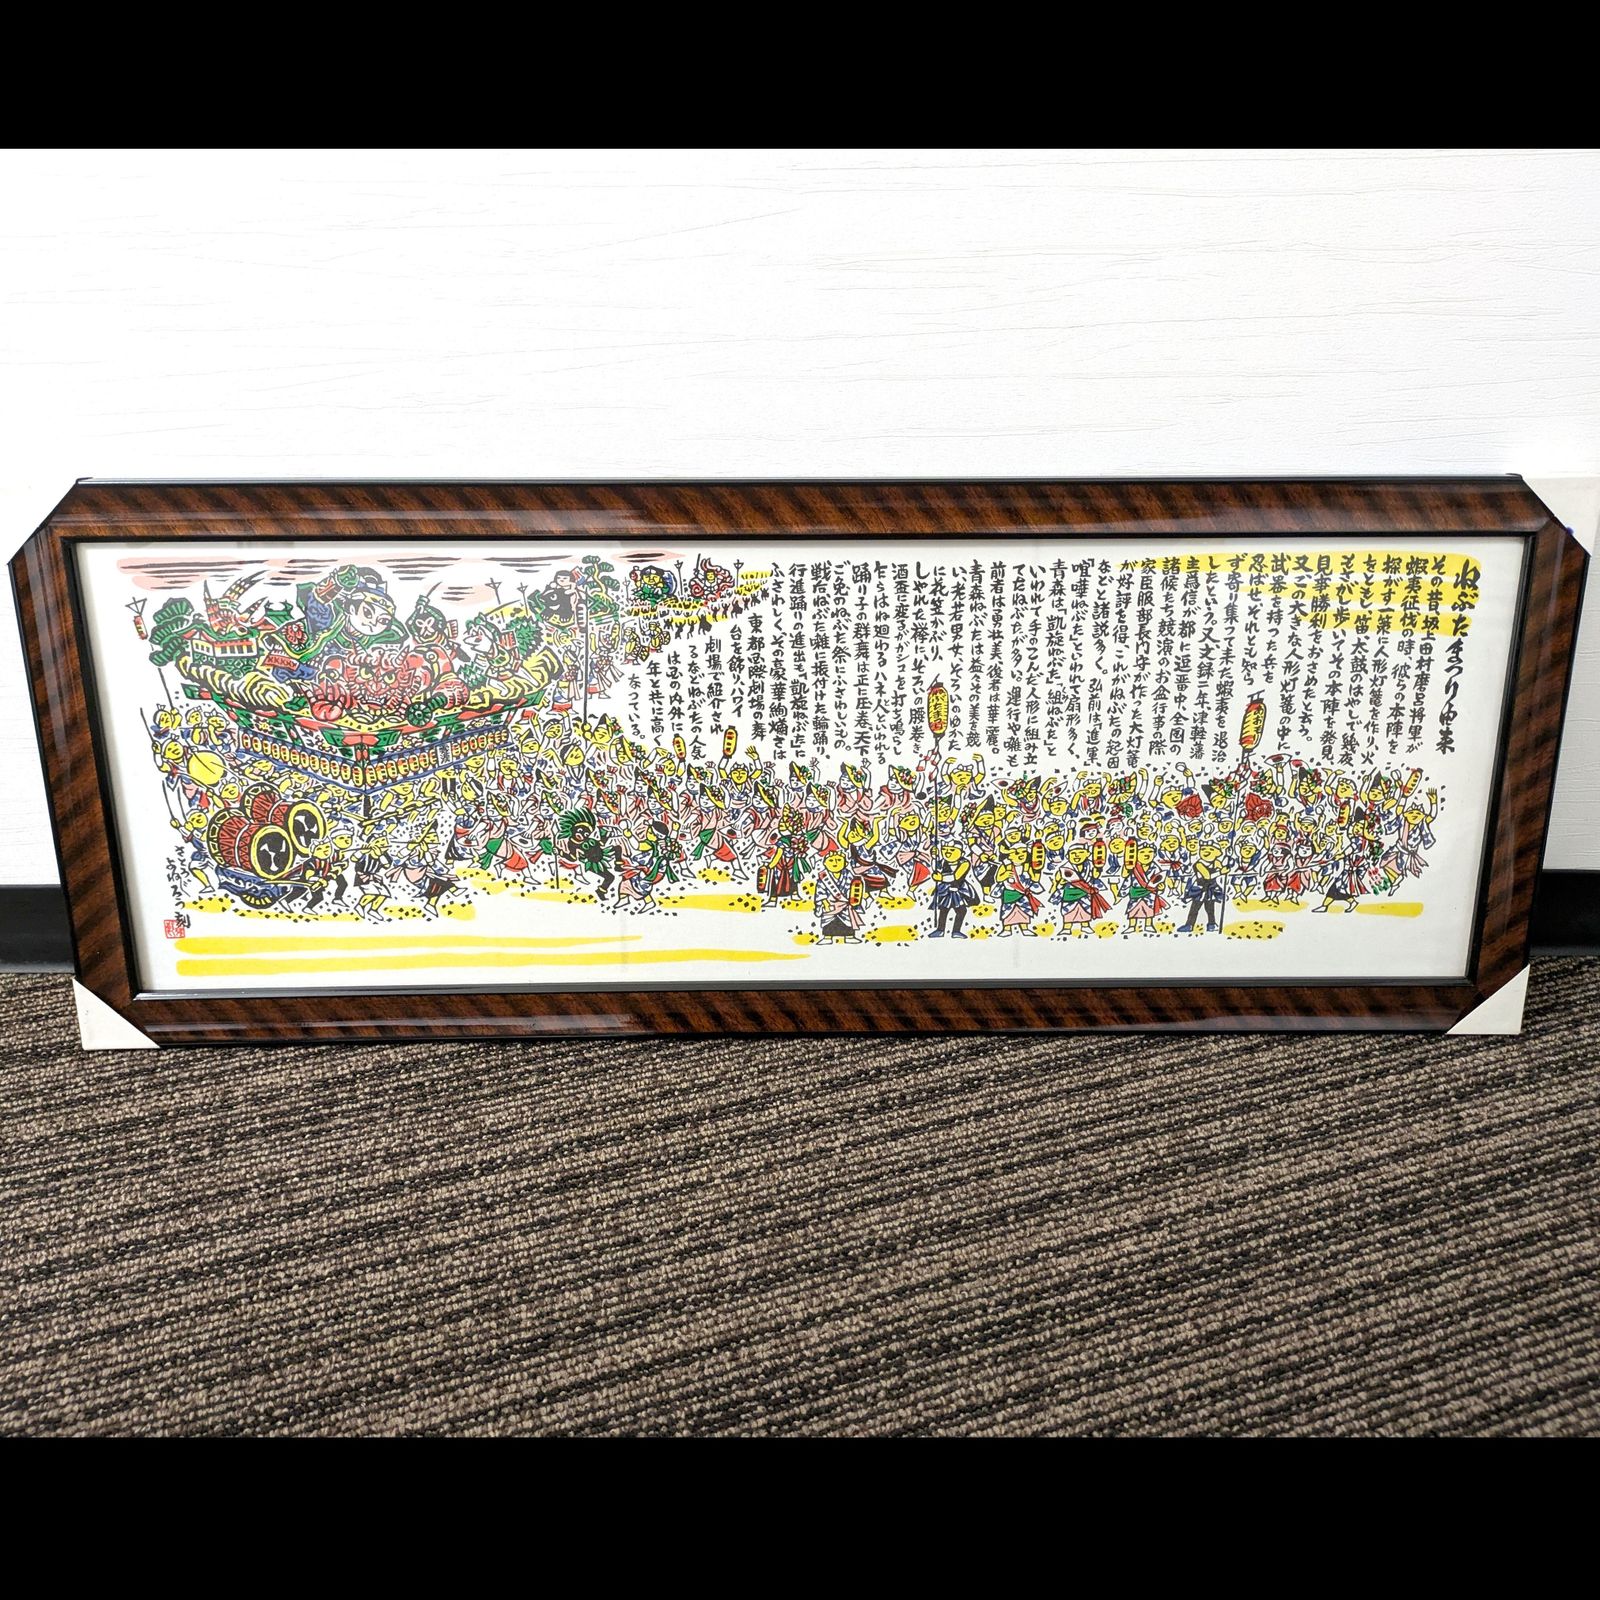 ねぶたまつりゆ来
その昔坂上田村磨呂将軍が
蝦夷征伐の時、彼らの本陣を
探がす一策に人形灯篭を作り、火
をともし、笛太鼓のはやしで幾夜
もさがし歩いてその本陣を発見、
見事勝利をおさめたと云う。
又この大きな人形灯篭の中に
武器を持った兵を
忍ばせそれとも知ら
ず寄り集って来た蝦夷を退治
したという。又文録二年、津軽藩
主爲信が都に逗畄中、全囯の
諸候たち競演のお盆行事の際
家臣服部長門守が作った大灯篭
が好評を得、これがねぶたの起因
などと諸説多く、弘前は「進軍」
「喧嘩ねぶた」といわれて扇形多く、
青森は「凱旋ねぶた」「組ねぶた」と
いわれて手のこんだ人形に組み立
てたねぶたが多い。運行や囃も
前者は勇壮美後者は華麗。
青森ねぶたは益々その美を競
い、老若男女、そろいのゆかた
に花笠かぶり、
しゃれた襷に、そろいの腰巻き、
酒盃に変るガガシコを打ち鳴らし
乍らはね廻わるハネ人といわれる
踊り子の群舞は正に圧巻天下
ご免のねぶた祭にふさわしいもの。
戦后ねぶた囃に振付けた輪踊り
行進踊りの進出も「凱旋ねぶた」に
ふさわしく、その豪華絢爛さは
東都国際劇場の舞
台を飾り、ハワイ
劇場で紹介され
るなどねぶたの人気
は国の内外に
年と共に高く
なっている。
刻